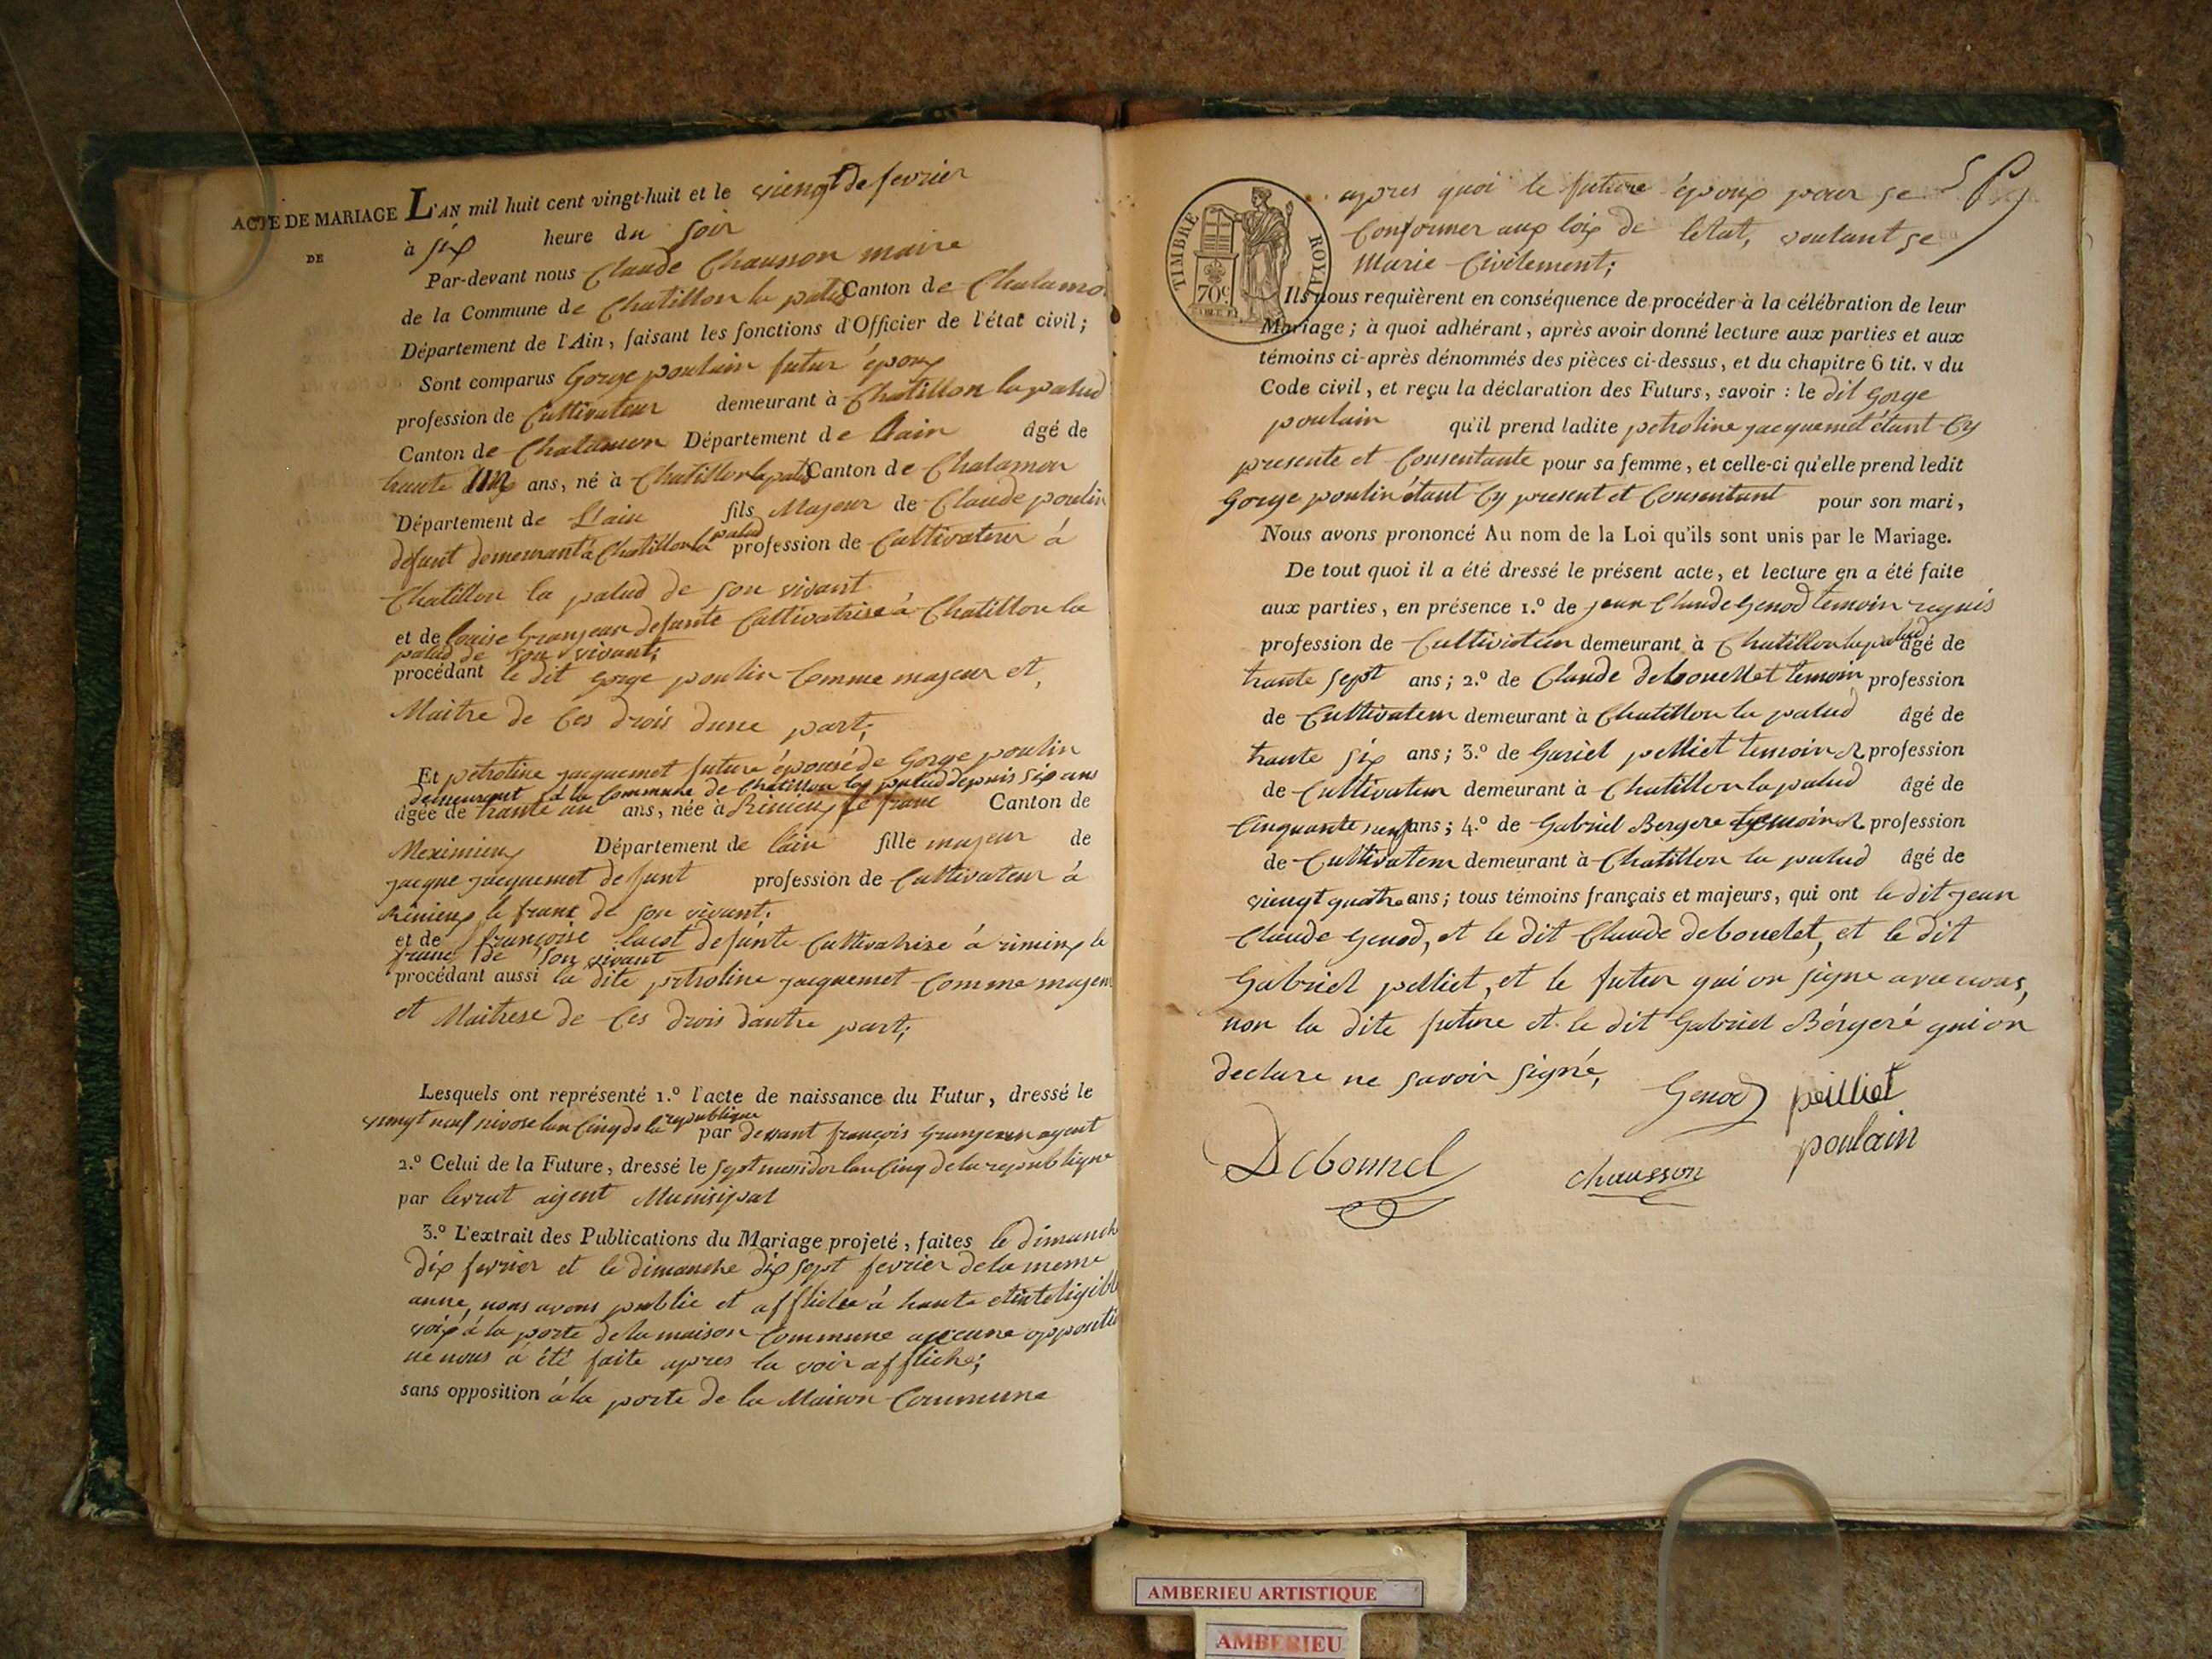 ACTE DE MARIAGE L'AN mil huit cent vingt-huit et le viengt de fevrier
DE
à six heure du soir
Par-devant nous Claude Chausson maire
de la Commune de Chatillon la palud Canton de Chalamo
Département de l'Ain, faisant les fonctions d'Officier de l'état civil;
Sont comparus Gorge poulain futur époux
profession de Cultivateur demeurant à Chatillon la palud
Canton de Chalamon Département de Lain âgé de
trante un ans, né à Chatillon la palud Canton de Chalamon
Département de L'ain fils Majeur de Claude poulin
defunt demeurant à Chatillon la palud profession de Cultivateur à
Chatillon la palud de son vivant
et de louise Granjean defunte Cultivatrise à Chatillon la
palud de son vivant;
procédant le dit Gorge poulin Comme majeur et,
Maitre de Ces drois dune part;
Et petroline jacquemet future épouse de Gorge poulin
demeurant à la Commune de Chatillon la palud depuis six ans
âgée de trante un ans, née à Rimieux le franc Canton de
Meximieux Département de lain fille majeur de
jacque jacquemet defunt profession de Cultivateur à
Rimieux le franc de son vivant;
et de françoise lacot defunte Cultivatrise à rimiux le
franc de son vivant
procédant aussi la dite petroline jacquemet Comme majeur
et Maitrese de Ces drois dautre part;
Lesquels ont représenté 1.º l'acte de naissance du Futur, dressé le
viengt neuf nivose lan Cinq de la republique par devant françois Granjean agent
2.º Celui de la Future, dressé le sept messidor lan Cinq de la republique
par levrat agent Munisipal
3.º L'extrait des Publications du Mariage projeté, faites le dimanch
dix fevrier et le dimanche dix sept fevrier de la meme
anne, nous avons publie et affliché à haute et inteligible
voix à la porte de la maison Commune aucune oppositio
ne nous à été faite apres la voir affliché;
sans opposition à la porte de la Maison Commune
5
TIMBRE ROYAL
70 c
apres quoi le future époux pour se
Conformer aux loix de letat, voulant se
Marie Civilement;
Ils nous requièrent en conséquence de procéder à la célébration de leur
Mariage; à quoi adhérant, après avoir donné lecture aux parties et aux
témoins ci-après dénommés des pièces ci-dessus, et du chapitre 6 tit. v du
Code civil, et reçu la déclaration des Futurs, savoir : le dit Gorge
poulain qu'il prend ladite petroline jacquemet étant Cy
presente et Consentante pour sa femme, et celle-ci qu'elle prend ledit
Gorge poulin étant Cy present et Consentant pour son mari,
Nous avons prononcé Au nom de la Loi qu'ils sont unis par le Mariage.
De tout quoi il a été dressé le présent acte, et lecture en a été faite
aux parties, en présence 1.º de jean Claude Genod temoin requis
profession de Cultivateur demeurant à Chatillon la palud âgé de
trante sept ans; 2.º de Claude debouellet temoin profession
de Cultivateur demeurant à Chatillon la palud âgé de
trante six ans; 3.º de Gariel pelliet temoin R profession
de Cultivateur demeurant à Chatillon la palud âgé de
Cinquante neuf ans; 4.º de Gabriel Bergere temoin R profession
de Cultivateur demeurant à Chatillon la palud âgé de
viengt quatre ans; tous témoins français et majeurs, qui ont le dit jean
Claude Genod, et le dit Claude debouelet, et le dit
Gabriel pelliet, et le futur qui on signe avec nous,
non la dite future et le dit Gabriel Bérgeré qui on
declare ne savoir signé,
Genod peilliet
poulain
Debonnel chausson
AMBERIEU ARTISTIQUE
AMBERIEU